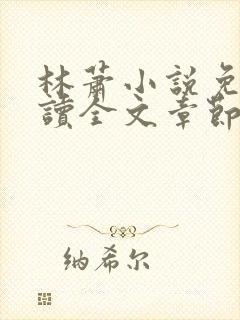 林蕭小說免
讀全文章節
纳希尔